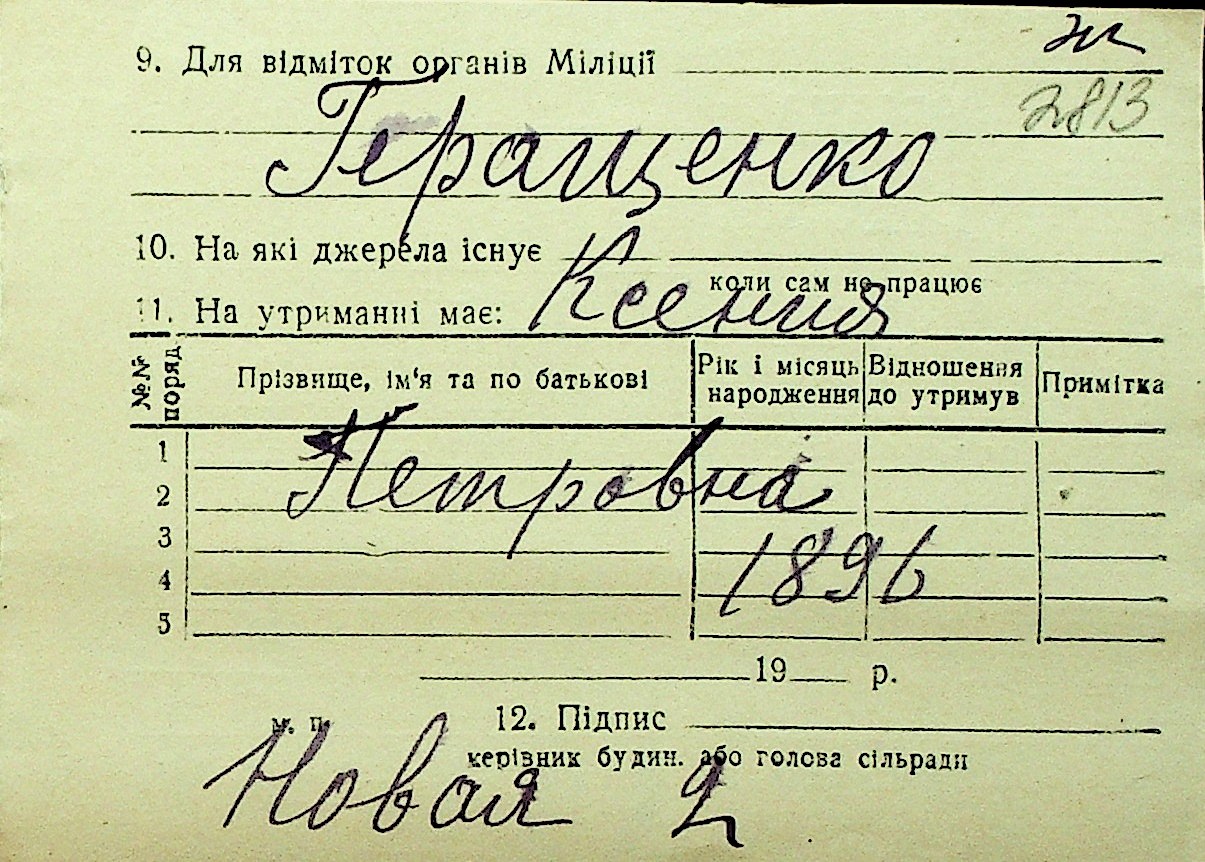 9. Для відміток органів Міліції
2813
Геращенко
10. На які джерела існує
коли сам не працює
11. На утриманні має:
Ксения
№№ поряд
Прізвище, ім'я та по батькові
Рік і місяць народження
Відношення до утримув
Примітка
1
Петровна
2
3
1896
4
5
19 р.
м. п.
12. Підпис
керівник будин. або голова сільради
Новая 2